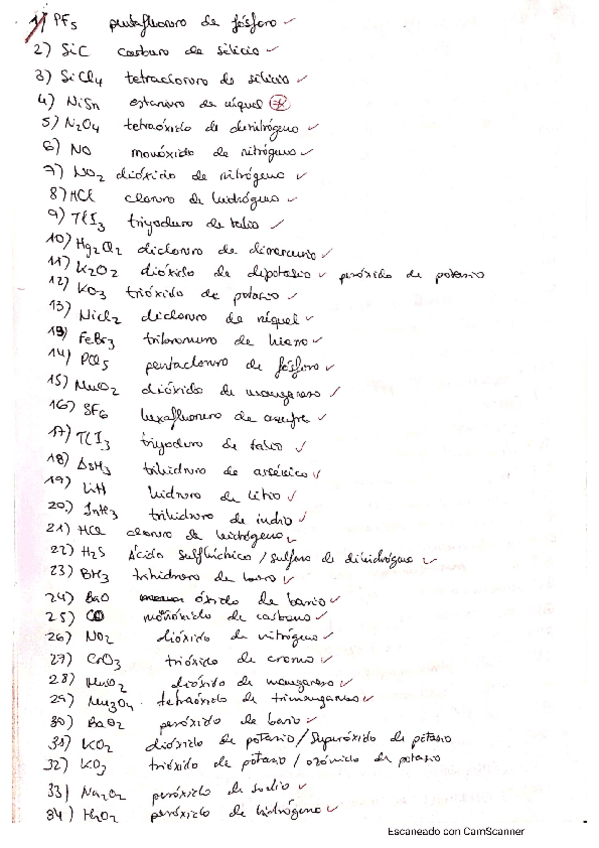 1) PF5 pentafluoruro de fósforo
2) SiC carburo de silicio ✓
3) SiCl4 tetracloruro de silicio ✓
4) NiSn estannuro de níquel
5) N2O4 tetraóxido de dinitrógeno ✓
6) NO monóxido de nitrógeno ✓
7) NO2 dióxido de nitrógeno ✓
8) HCl cloruro de hidrógeno ✓
9) TlI3 triyoduro de talio ✓
10) Hg2Cl2 dicloruro de dimercurio ✓
11) K2O2 dióxido de dipotasio ✓ peróxido de potasio
12) KO3 trióxido de potasio ✓
13) NiCl2 dicloruro de níquel ✓
13) FeBr3 tribromuro de hierro ✓
14) PCl5 pentacloruro de fósforo ✓
15) MnO2 dióxido de manganeso ✓
16) SF6 hexafluoruro de azufre ✓
17) TlI3 triyoduro de talio ✓
18) AsH3 trihidruro de arsénico ✓
19) LiH hidruro de litio ✓
20) InH3 trihidruro de indio ✓
21) HCl cloruro de hidrógeno ✓
22) H2S Ácido sulfhídrico / sulfuro de dihidrógeno ✓
23) BH3 trihidruro de boro ✓
24) BaO óxido de bario ✓
25) CO monóxido de carbono ✓
26) NO2 dióxido de nitrógeno ✓
27) CrO3 trióxido de cromo ✓
28) MnO2 dióxido de manganeso ✓
29) Mn3O4 tetraóxido de trimanganeso ✓
30) BaO2 peróxido de bario ✓
31) KO2 dióxido de potasio / Superóxido de potasio
32) KO3 trióxido de potasio / ozónido de potasio
33) Na2O2 peróxido de sodio ✓
34) H2O2 peróxido de hidrógeno ✓
Escaneado con CamScanner